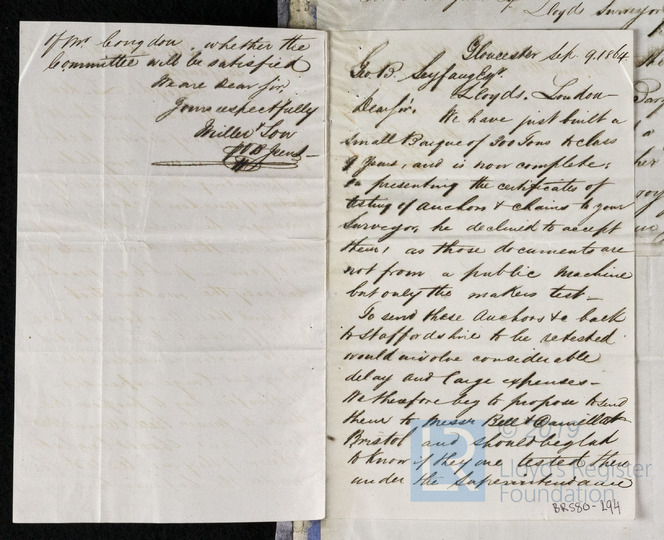 Gloucester Sep. 9. 1864
Geo. B. Seyfang Esqr.
Lloyds. London
Dear Sir. We have just built a
small Barque of 300 Tons to class
9 years, and is now complete,
on presenting the certificates of
testing of Anchors & chains to your
Surveyor, he declined to accept
them, as those documents are
not from a public machine
but only the makers test—
To send these Anchors &c back
to Staffordshire to be retested
would involve considerable
delay and large expenses—
We therefore beg to propose to send
them to Messr Bell & at
Bristol and should be glad
to know if they are tested there
under the Superintendance
of Mr. Congdon. whether the
Committee will be satisfied
We are Dear Sir
Yours respectfully
Miller & Son
Lloyds Surveyor
© 2019
Lloyd's Register
Foundation
BRS80-194